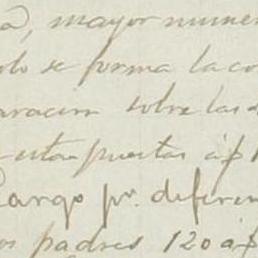 a, mayor numer
olo se forma la co
aracion sobre las
estan puestas á p
Cargo pr. diferen
os padres 120 á p